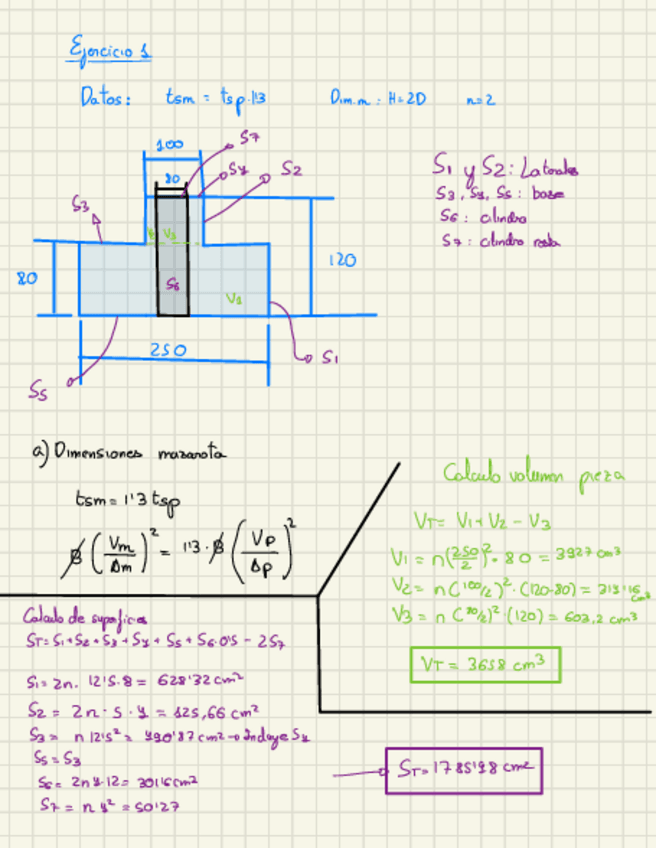 Ejercicio 1
Datos: tsm = tsp·1'3 Dim.m: H=2D n=2
100
80
S7
S4
S2
S3
V2 V3
80
S6
V1
120
250
S1
S5
S1 y S2: Laterales
S3, S4, S5: base
S6: cilindro
S7: cilindro resta
a) Dimensiones mazarota
tsm = 1'3 tsp
B (Vm/Am)^2 = 1'3·B (Vp/Ap)^2
Calculo volumen pieza
VT = V1 + V2 - V3
V1 = π(250/2)^2 · 80 = 3927 cm³
V2 = π(100/2)^2 · (120-80) = 314'16 cm³
V3 = π(80/2)^2 · (120) = 603,2 cm³
VT = 3658 cm³
Calculo de superficies
ST = S1+S2+S3+S4+S5+S6·0'5 - 2S7
S1 = 2π · 12'5·8 = 628'32 cm²
S2 = 2π · 5 · 4 = 125,66 cm²
S3 = π 12'5² = 490'87 cm² → Incluye S4
S5 = S3
S6 = 2π4·12 = 301'6 cm²
S7 = π 4² = 50'27
ST = 1785'98 cm²